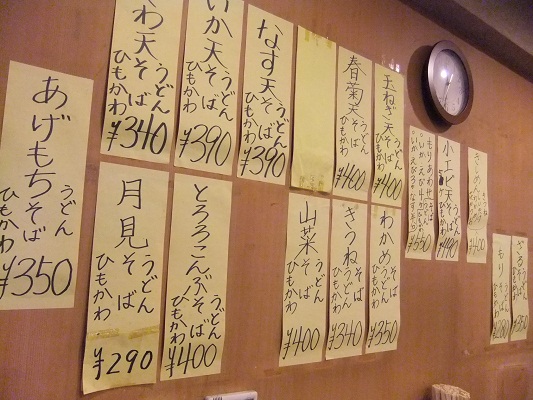 あげもち
うどん
そば
ひもかわ
¥350
わ天
うどん
そば
ひもかわ
¥340
いか天
うどん
そば
ひもかわ
¥390
なす天
うどん
そば
ひもかわ
¥390
春菊天
うどん
そば
ひもかわ
¥400
玉ねぎ天
うどん
そば
ひもかわ
¥400
¥550
小エビ天
うどん
そば
ひもかわ
¥490
きしめん
¥400
月見
うどん
そば
ひもかわ
¥290
とろろこんぶ
うどん
そば
ひもかわ
¥400
山菜
うどん
そば
ひもかわ
¥400
きつね
そば
うどん
ひもかわ
¥340
わかめ
そば
うどん
ひもかわ
¥350
もり
そば
うどん
ざる
そば
うどん
¥350